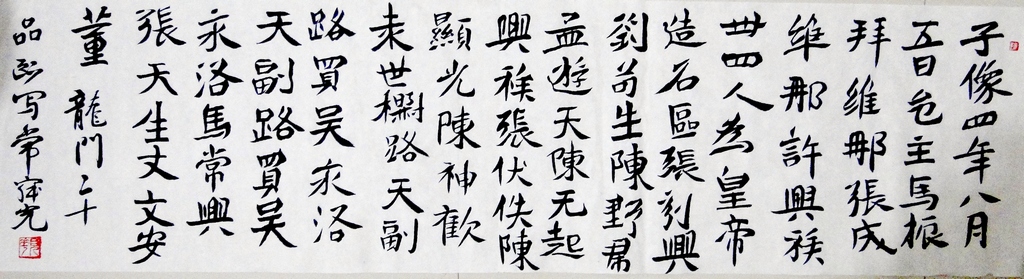 子像四年八月
五日邑主馬振
拜維那張成
維那許興族
丗四人為皇帝
造石區張引興
劉苟生陳野
孟遊天陳无起
興族張伏佚陳
顯光陳神歡
未世路天副
路買吴永洛
天副路買吴
永洛馬常興
張天生丈文安
董 龍門二十
品 写常光